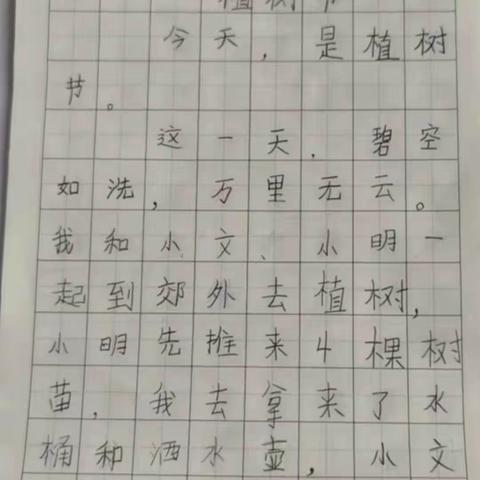 植树节
今天，是植树
节。
这一天，碧空
如洗，万里无云。
我和小文、小明一
起到郊外去植树，
小明先推来4棵树
苗，我去拿来了水
桶和洒水壶，小文